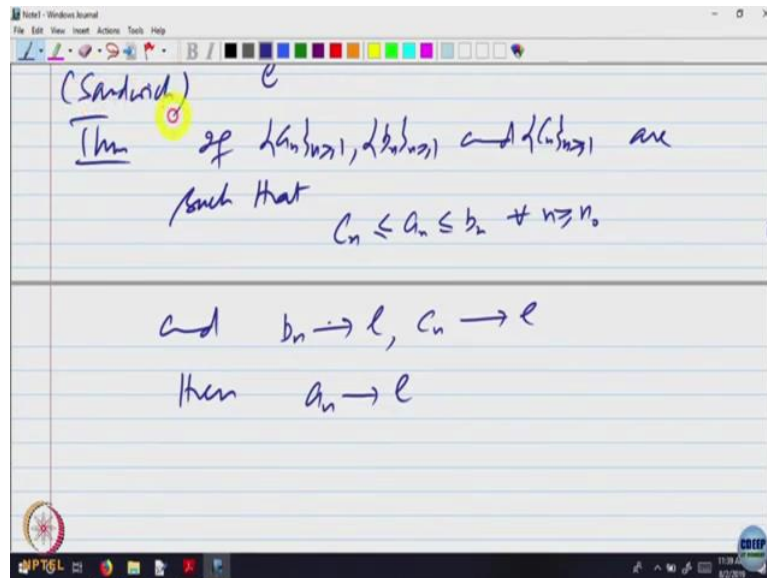 Note1 - Windows Journal
File Edit View Insert Actions Tools Help
B I
(Sandwich) l
Thm If {an}n≥1, {bn}n≥1 and {cn}n≥1 are
such that
Cn ≤ an ≤ bn ∀ n ≥ n₀
and bn → l, cn → l
then an → l
NPTEL
CDEEP
IIT BOMBAY
11:39 A
8/2/2019